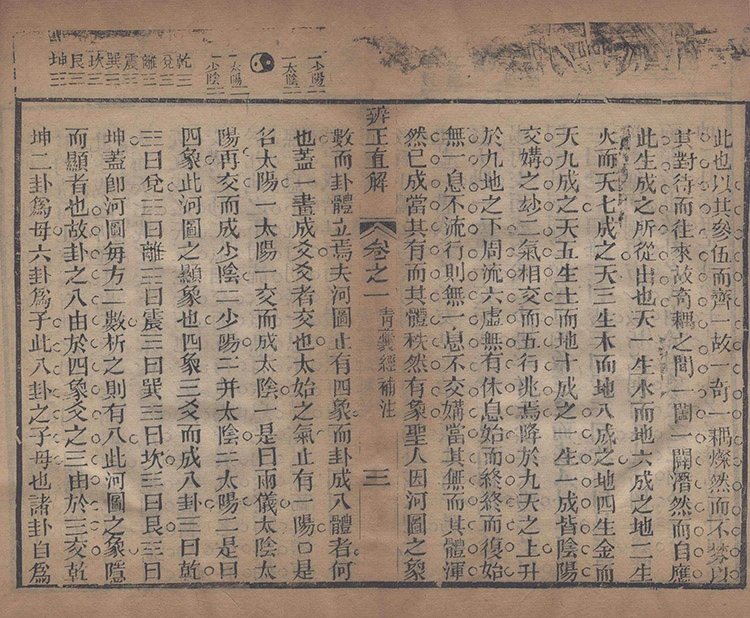 少陽
太陰
太陽
少陰
乾兌離震巽坎艮坤
此也以其參伍而齊一故一奇一耦燦然而不棼以
其對待而往來故奇耦之間一闔一闢濟然而自應
此生成之所從出也天一生水而地六成之地二生
火而天七成之天三生木而地八成之地四生金而
天九成之天五生土而地十成之一生一成皆陰陽
交媾之妙二氣相交而五行兆焉降於九天之上升
於九地之下周流六虛無有休息始而終終而復始
無一息不流行則無一息不交媾當其無而其體渾
然已成當其有而其體秩然有象聖人因河圖之象
辨正直解 卷之一 青囊經補注 三
數而卦體立焉夫河圖止有四象而卦成八體者何
也蓋一畫成爻爻者交也太始之氣止有一陽口是
名太陽一太陽一交而成太陰一是曰兩儀太陰太
陽再交而成少陰二少陽二并太陰二太陽二是曰
四象此河圖之顯象也四象三爻而成八卦三曰乾
三曰兌三曰離三曰震三曰巽三曰坎三曰艮三曰
坤蓋卽河圖每方二數析之則有八此河圖之象隱
而顯者也故卦之八由於四象爻之三由於三交乾
坤二卦爲母六卦爲子此八卦之子母也諸卦自爲